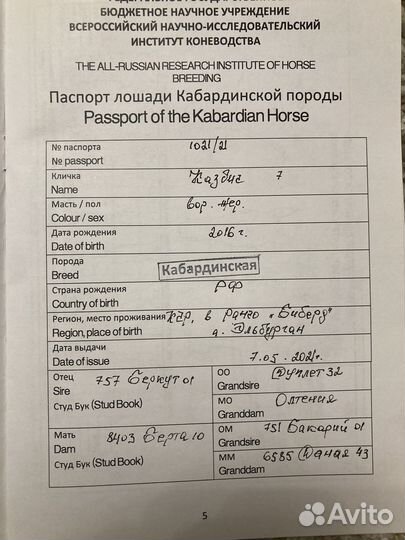 ФЕДЕРАЛЬНОЕ ГОСУДАРСТВЕННОЕ
БЮДЖЕТНОЕ НАУЧНОЕ УЧРЕЖДЕНИЕ
ВСЕРОССИЙСКИЙ НАУЧНО-ИССЛЕДОВАТЕЛЬСКИЙ
ИНСТИТУТ КОНЕВОДСТВА
THE ALL-RUSSIAN RESEARCH INSTITUTE OF HORSE
BREEDING
Паспорт лошади Кабардинской породы
Passport of the Kabardian Horse
№ паспорта 1021/21
№ passport
Кличка Казбис 7
Name
Масть / пол вор. жер.
Colour / sex
Дата рождения 2016 г.
Date of birth
Порода Кабардинская
Breed
Страна рождения РФ
Country of birth
Регион, место проживания КЧР, "Биберд"
Region, place of birth а. Эльбурган
Дата выдачи
Date of issue 7.05.2021г.
Отец 757 Беркут 01
Sire
Студ Бук (Stud Book)
ОО Дуплет 32
Grandsire
МО Олтения
Granddam
Мать 8403 Берта 10
Dam
Студ Бук (Stud Book)
ОМ 751 Бакарий 01
Grandsire
ММ 6585 Даная 43
Granddam
5
Avito